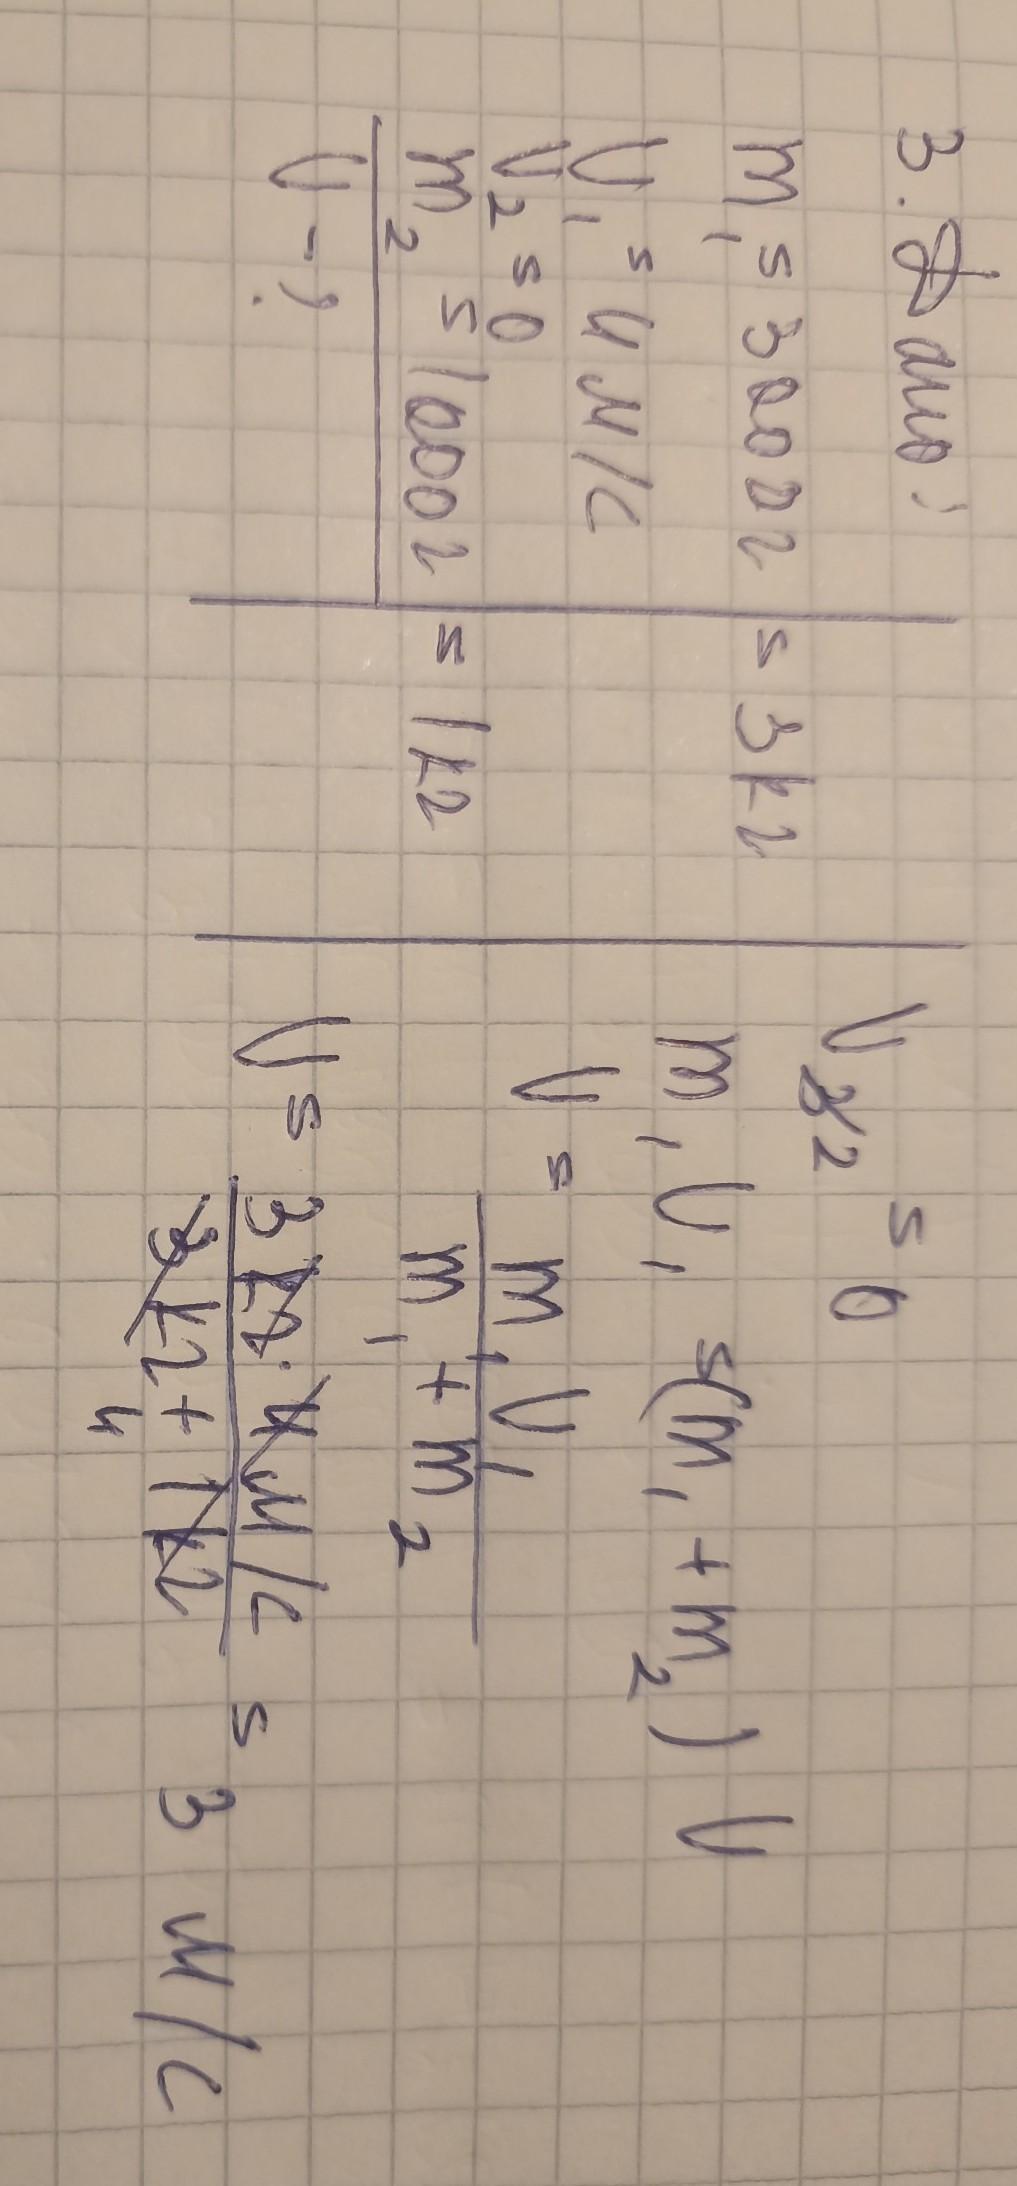 3. Дано:
m₁ = 3000г = 3кг
V₁ = 4 м/с
V₂ = 0
m₂ = 1000г = 1кг
V - ?
V₂ = 0
m₁V₁ = (m₁ + m₂) V
V = m₁V₁ / m₁ + m₂
V = 3кг·4м/с / 3кг + 1кг = 3 м/с
4